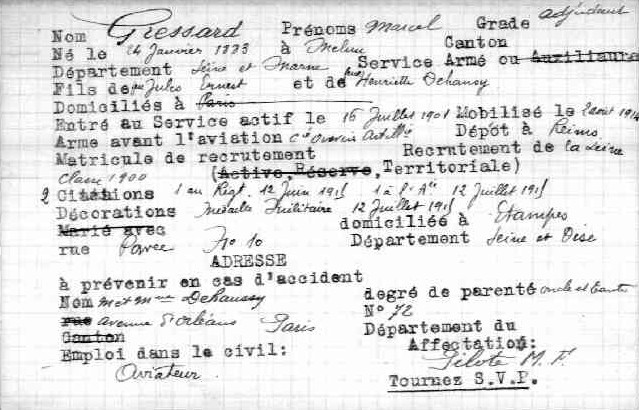 Nom Gressard Prénoms Marcel Grade adjudant
Né le 24 Janvier 1883 à Melun Canton
Département Seine et Marne Service Armé ou Auxiliaire
Fils de feu Jules Ernest et de feu Henriette Dehaussy
Domiciliés à Paris
Entré au Service actif le 16 Juillet 1901 Mobilisé le 2 août 1914
Arme avant l'aviation Cie ouvrier Artillie Dépôt à Reims
Matricule de recrutement Recrutement de la Seine
Classe 1900 (Active, Réserve, Territoriale)
2 Citations 1 au Régt. 12 Juin 1915 1 à l'Ar 12 Juillet 1915
Décorations Médaille Militaire 12 Juillet 1915
Marié avec domiciliés à Etampes
rue Pavée No 10 Département Seine et Oise
ADRESSE
à prévenir en cas d'accident
Nom Mr et Mme Dehaussy degré de parenté oncle et tante
rue avenue d'Orléans Paris N° 72
Canton Département du
Emploi dans le civil: Affectation:
Aviateur. Pilote M. F.
Tournez S.V.P.